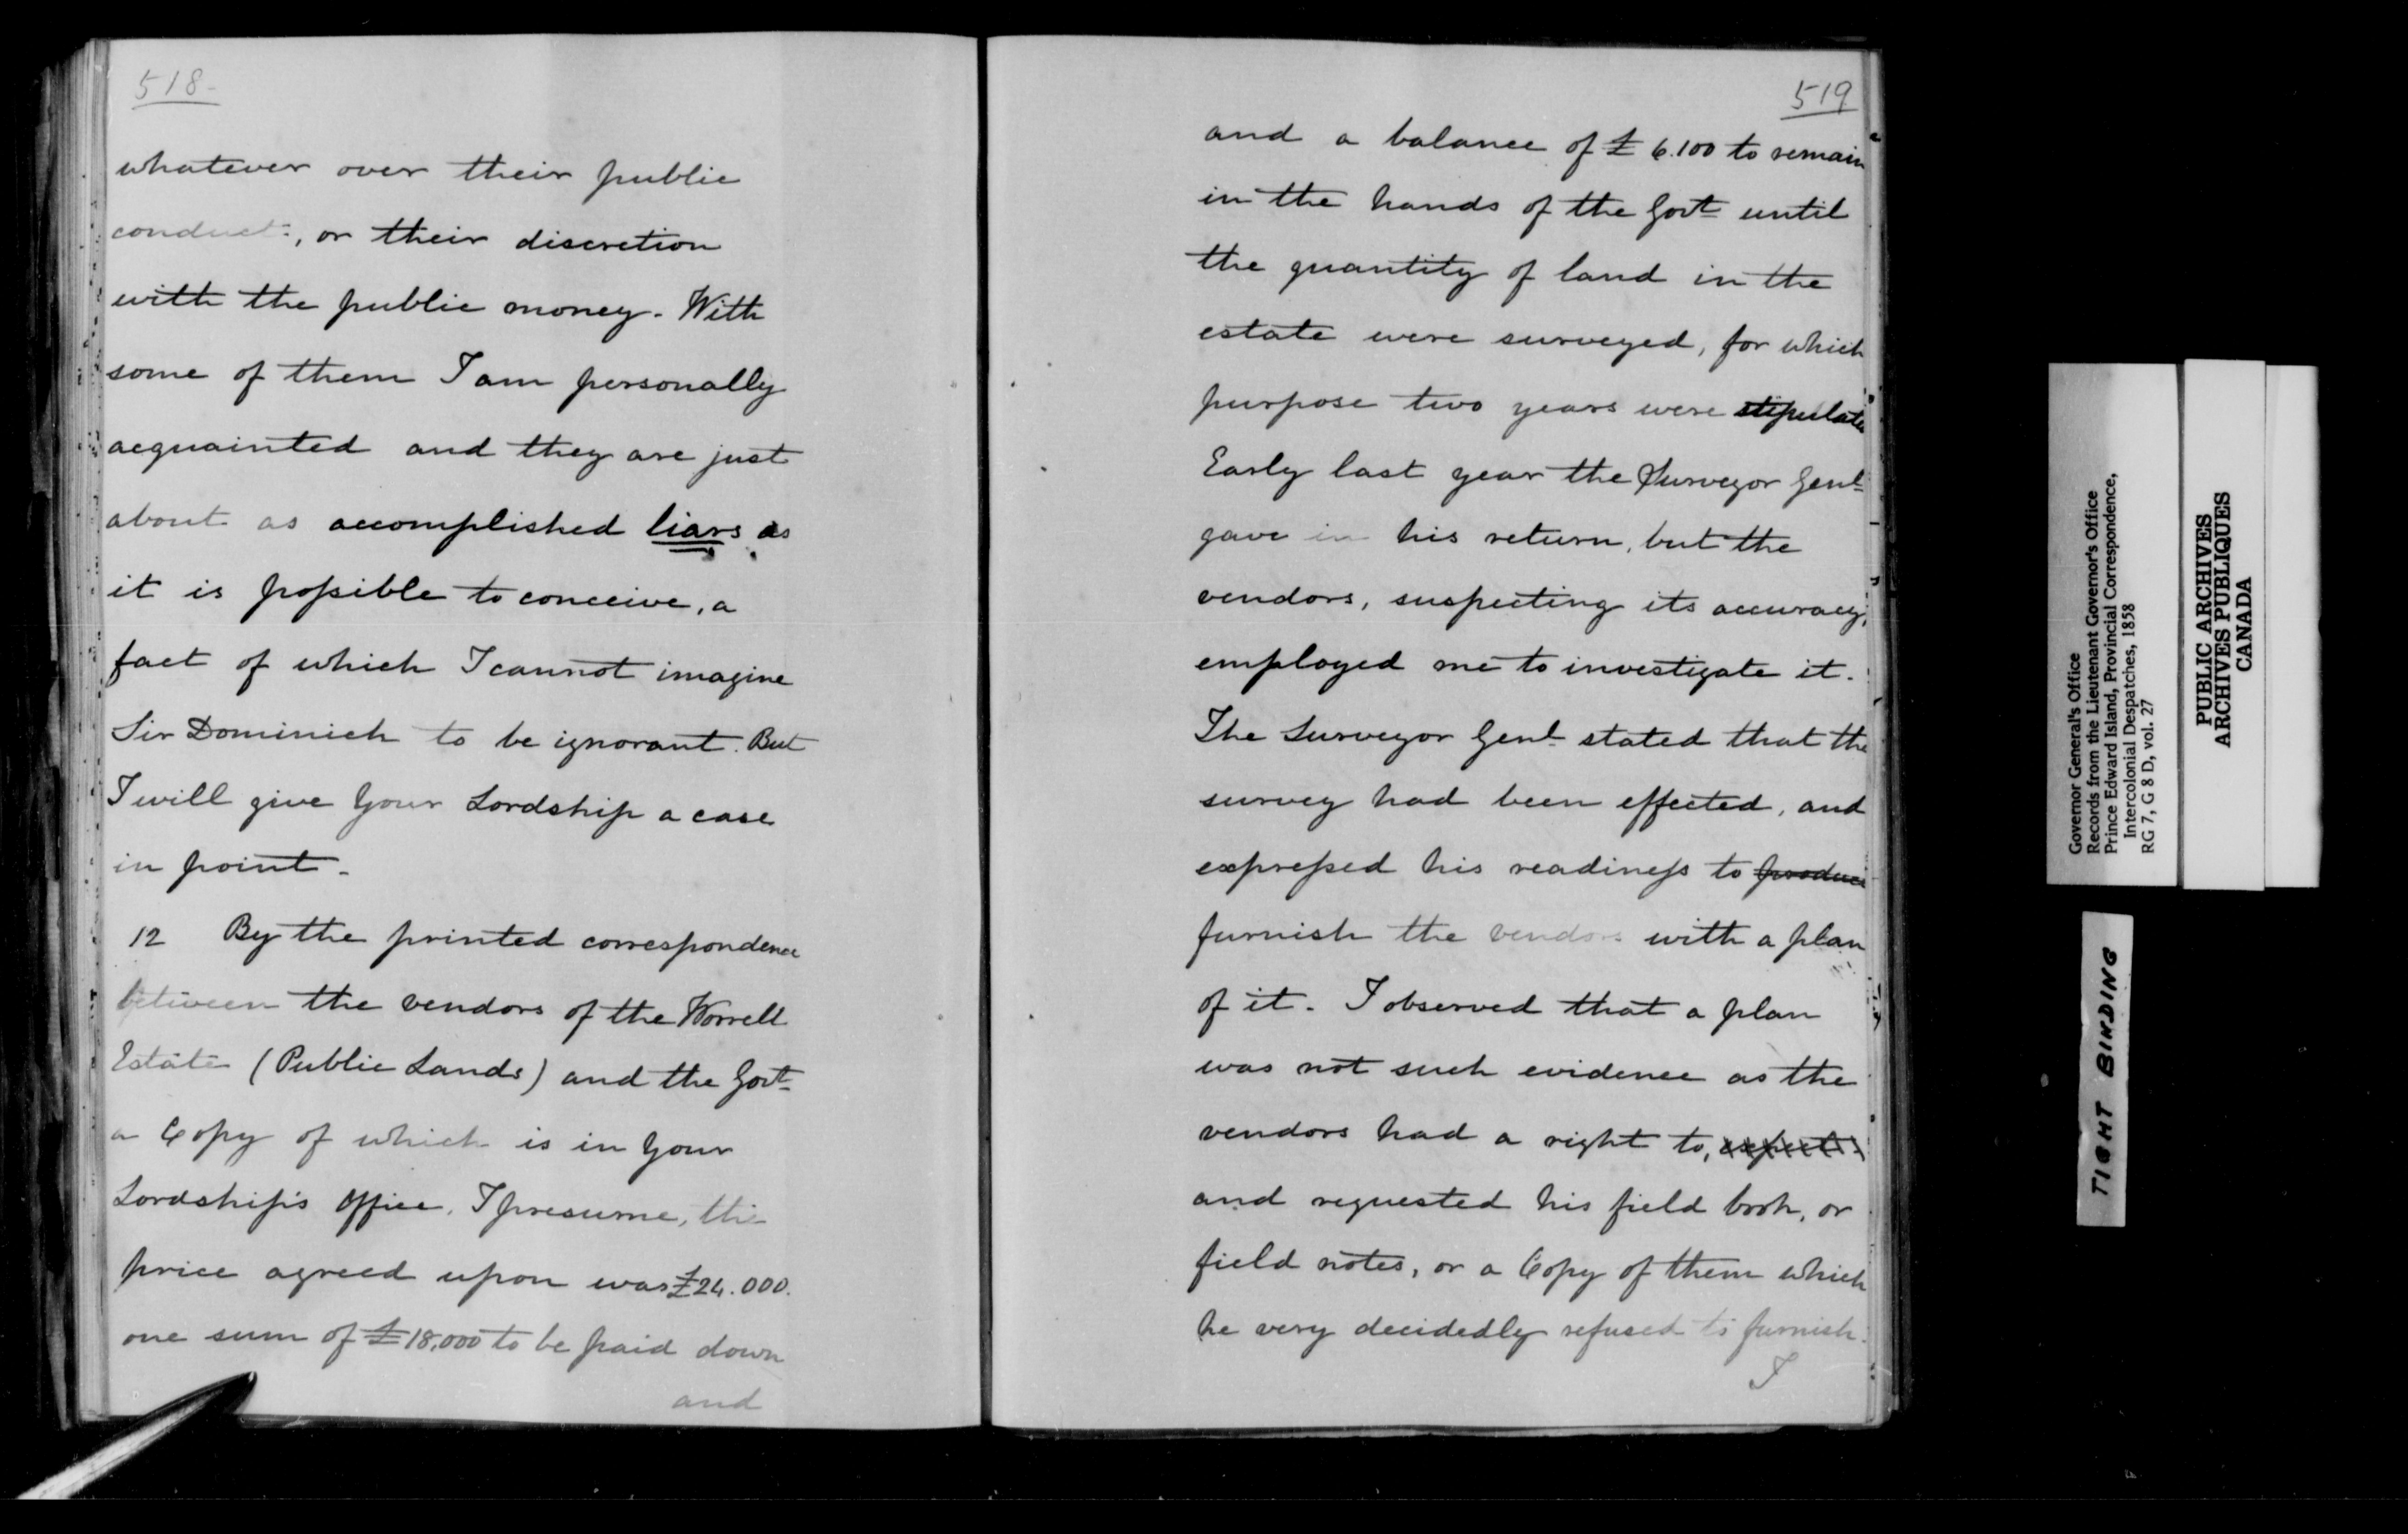 518-
whatever over their public
conduct, or their discretion
with the public money. With
some of them I am personally
acquainted and they are just
about as accomplished liars as
it is poſsible to conceive, a
fact of which I cannot imagine
Sir Dominick to be ignorant. But
I will give Your Lordship a case
in point.
12 By the printed correspondence
between the vendors of the Worrell
Estate (Public Lands) and the Govt
a Copy of which is in Your
Lordship's Office, I presume, the
price agreed upon was £24.000.
one sum of £18,000 to be paid down
and
519
and a balance of £6.100 to remain
in the hands of the Govt until
the quantity of land in the
estate were surveyed, for which
purpose two years were stipulated
Early last year the Surveyor Genl
gave in his return, but the
vendors, suspecting its accuracy,
employed me to investigate it.
The Surveyor Genl stated that the
survey had been effected, and
expreſsed his readineſs to produce
furnish the vendors with a plan
of it. I observed that a plan
was not such evidence as the
vendors had a right to, expect
and requested his field book, or
field notes, or a Copy of them which
he very decidedly refused to furnish.
I
Governor General's Office
Records from the Lieutenant Governor's Office
Prince Edward Island, Provincial Correspondence,
Intercolonial Despatches, 1858
RG 7, G 8 D, vol. 27
PUBLIC ARCHIVES
ARCHIVES PUBLIQUES
CANADA
TIGHT BINDING